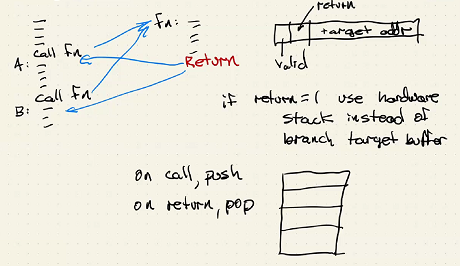 fn:
call fn
A:
Return
call fn
B:
return
target addr
valid
if return=1 use hardware
stack instead of
branch target buffer
on call, push
on return, pop